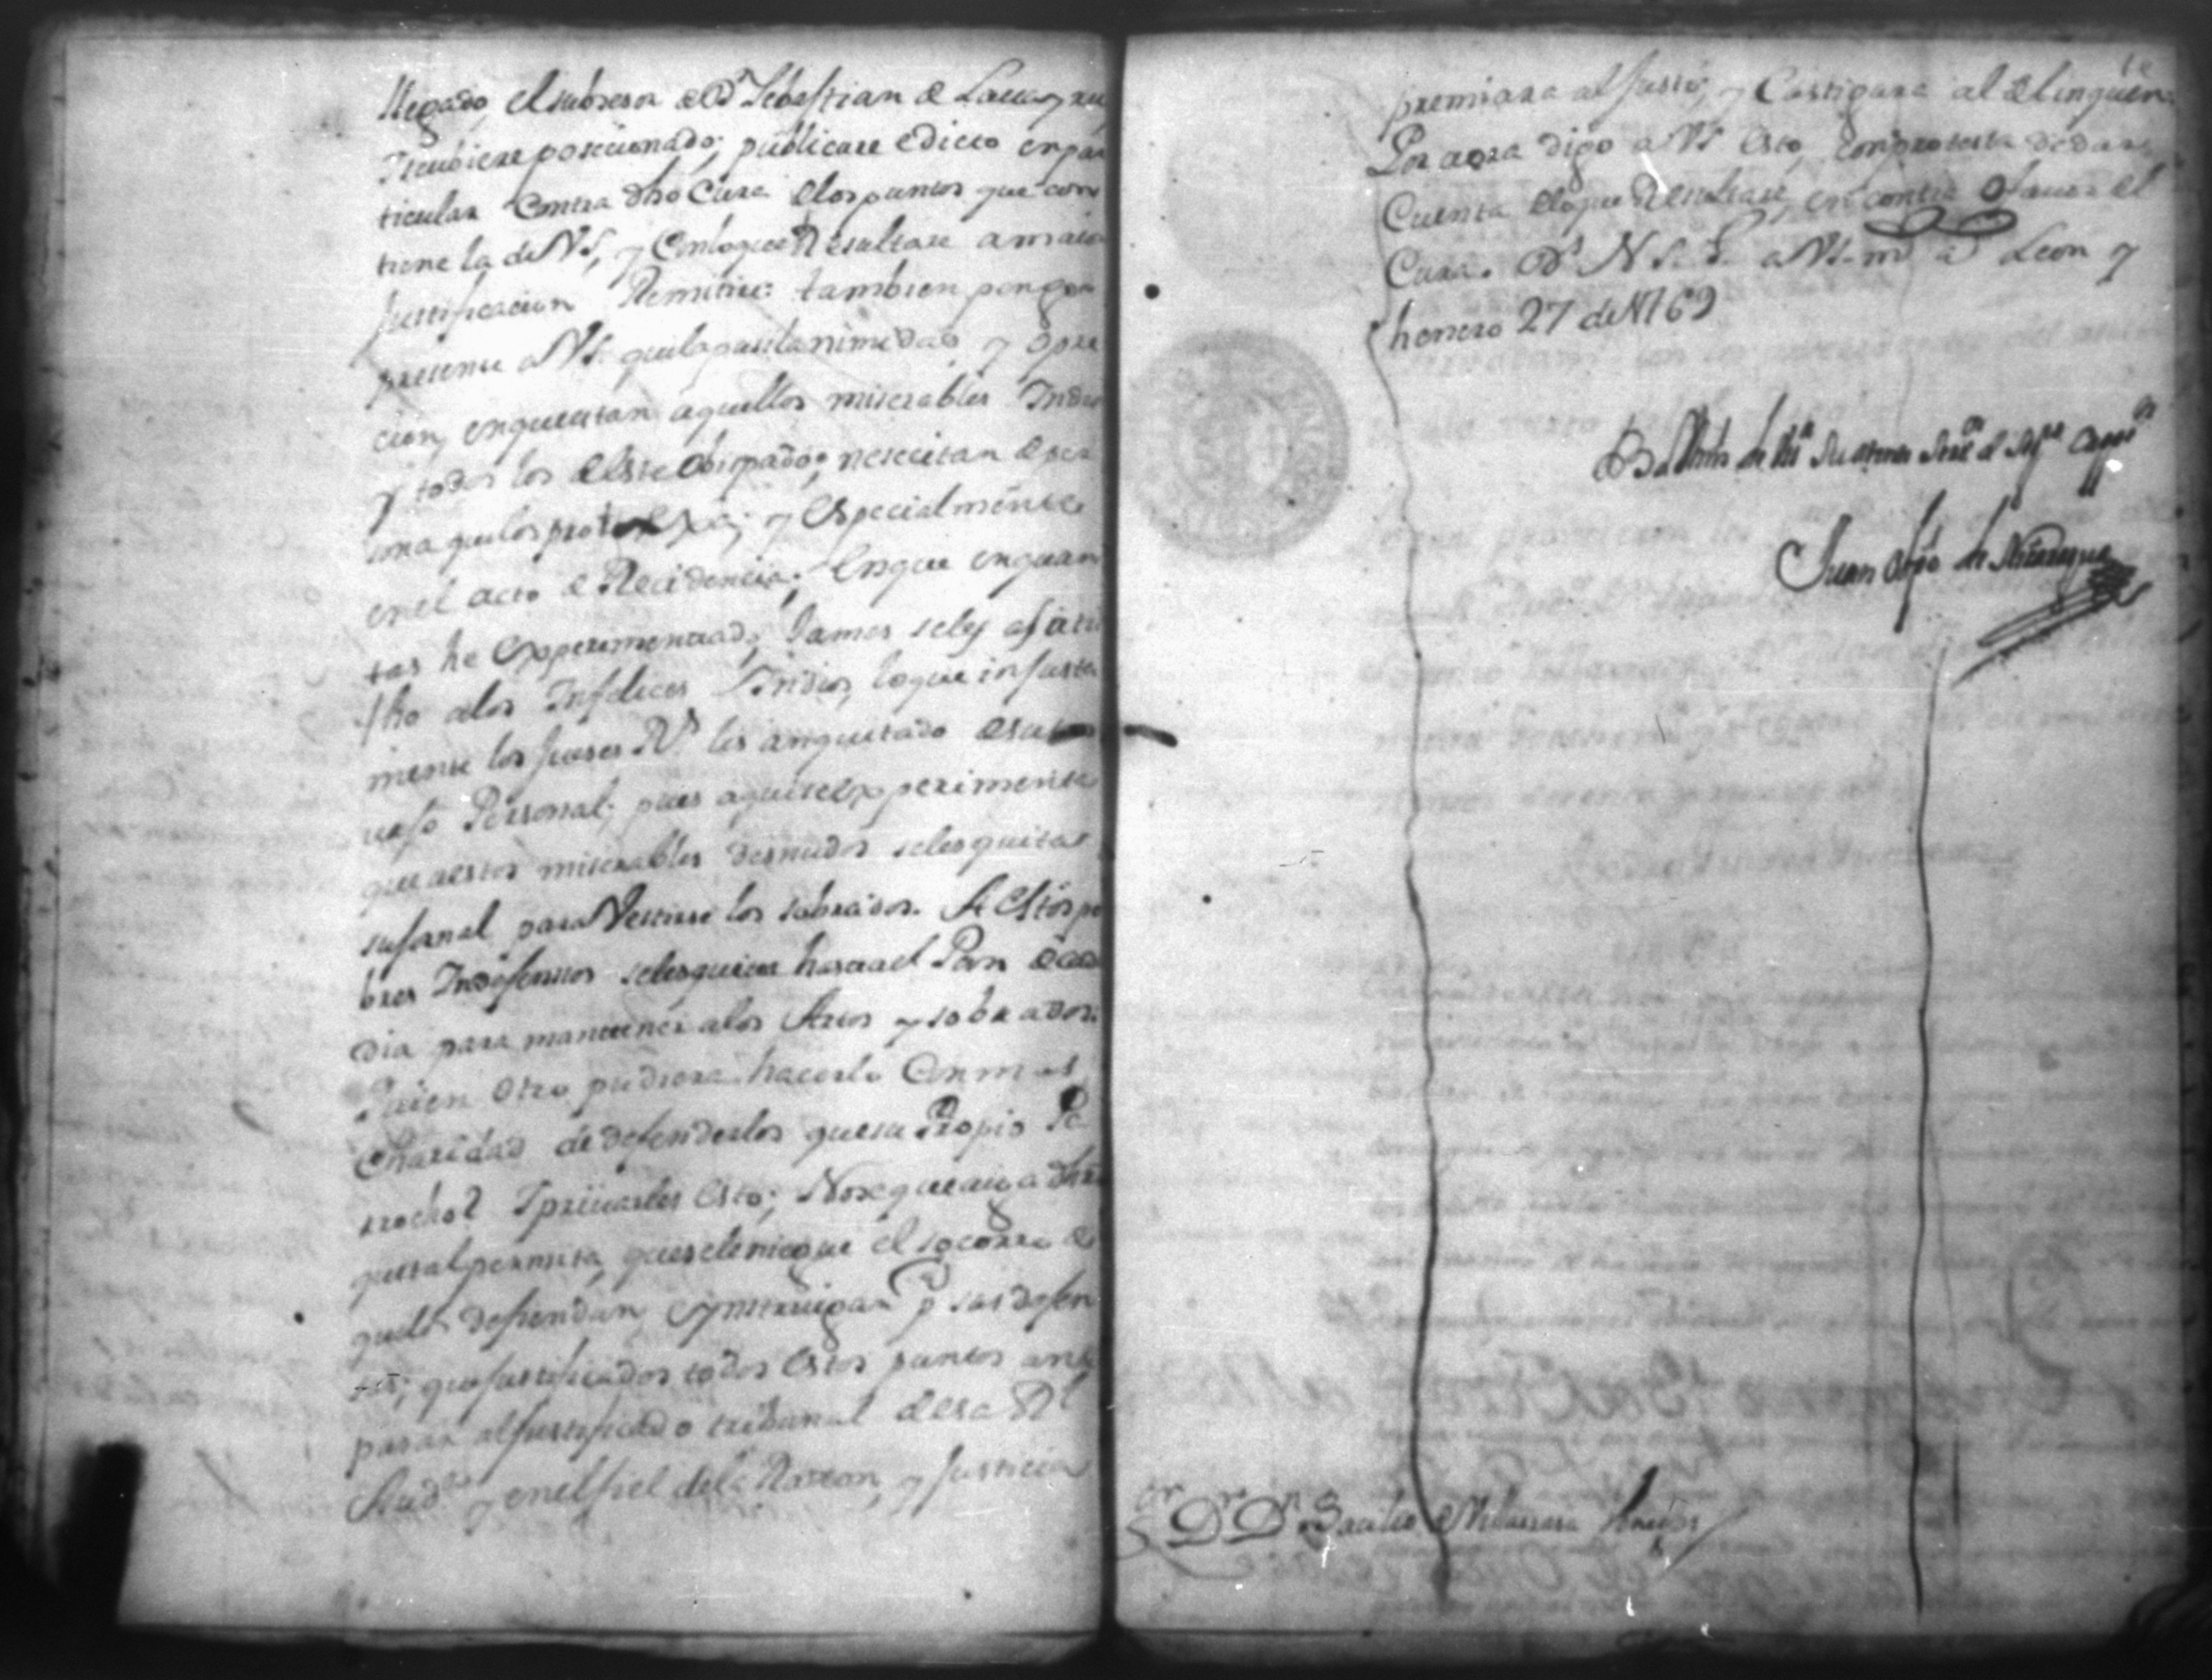 llegado, el subsesor de Dn Sebastian de
Iteubiere posecionado; publicare edicto en par
ticular Contra dho Cura de los puntos que con
tiene la de VS, y Con lo que Resultare a maior
justificacion Remitire: tambien pongo
presente a VS. que la pusilanimidad, y opre
cion, en que estan aquellos miserables Indios
y todos los de este obispado; nesecitan de per
sona que los protexa; y Especialmente
en el acto de Recidencia; En que en quan
tas he Experimentado, Jamas se les
dho a los Infelices Indios, lo que injusta
mente los Jueses Rs les an quitado de su
Personal; pues aqui se experimenta
que a estos miserables desnudos se les quita
su jornal para Vestirse los sobrados. A Estos po
bres Indefensos se les quita hasta el Pan de cada
dia para mantener a los Artos y sobrados.
Quien Otro pudiera hacerlo Con mas
Charidad de defenderlos que su Propio Pa
rrocho? I privarles Esto; No se que aiga dro
que tal permita, pues se le niega el socorro de
que los defiendan, e ynstruigan pa sus defen
sas; que justificados todos Estos puntos ante
pasar al justificado tribunal de esa Rl
Audª y en el fiel de la Razon, y Justicia
premiara al Justo; y Castigara al delinquen
Por aora digo a VS Esto, con protesta de dar
Cuenta de lo que Resultase, en contra o favor del
Cura. Ds N. S. G. a VS. ms as Leon y
henero 27 de 1769
B L Mno de VS su atento
Juan Anto de
Sr Dr Dn Bacilio de Villarrasa Benegas